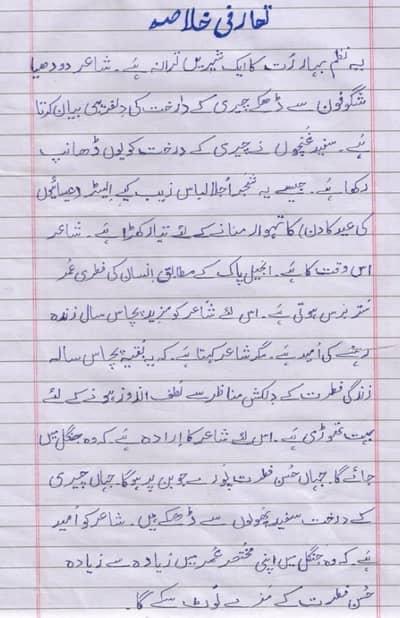 تعارفی خلاصہ
یہ نظم بہار رُت کا ایک شیریں ترانہ ہے۔ شاعر دودھیا
شگوفوں سے ڈھکے چیری کے درخت کی دلفریبی بیان کرتا
ہے۔ سفید غُنچوں نے چیری کے درخت کو یوں ڈھانپ
رکھا ہے۔ جیسے یہ شجر اُجلا لباس زیب کیے ایسٹر (عیسائیوں
کی عید کا دن) کا تہوار منانے کے لئے تیار کھڑا ہے۔ شاعر
اس وقت کا ہے۔ انجیل پاک کے مطابق انسان کی فطری عُمر
ستر برس ہوتی ہے۔ اس لئے شاعر کو مزید پچاس سال زندہ
رہنے کی اُمید ہے۔ مگر شاعر کہتا ہے۔ کہ یہ بقیہ پچاس سالہ
زندگی فطرت کے دلکش مناظر سے لُطف اندوز ہونے کے لئے
بہت تھوڑی ہے۔ اس لئے شاعر کا اِرادہ ہے کہ وہ جنگل میں
جائے گا۔ جہاں حُسنِ فطرت پُورے جوبن پر ہوگا۔ جہاں چیری
کے درخت سفید پھُولوں سے ڈھکے ہیں۔ شاعر کو اُمید
ہے۔ کہ وہ جنگل میں اپنی مُختصر عمر میں زیادہ سے زیادہ
حُسنِ فطرت کے مزے لُوٹ سکے گا۔